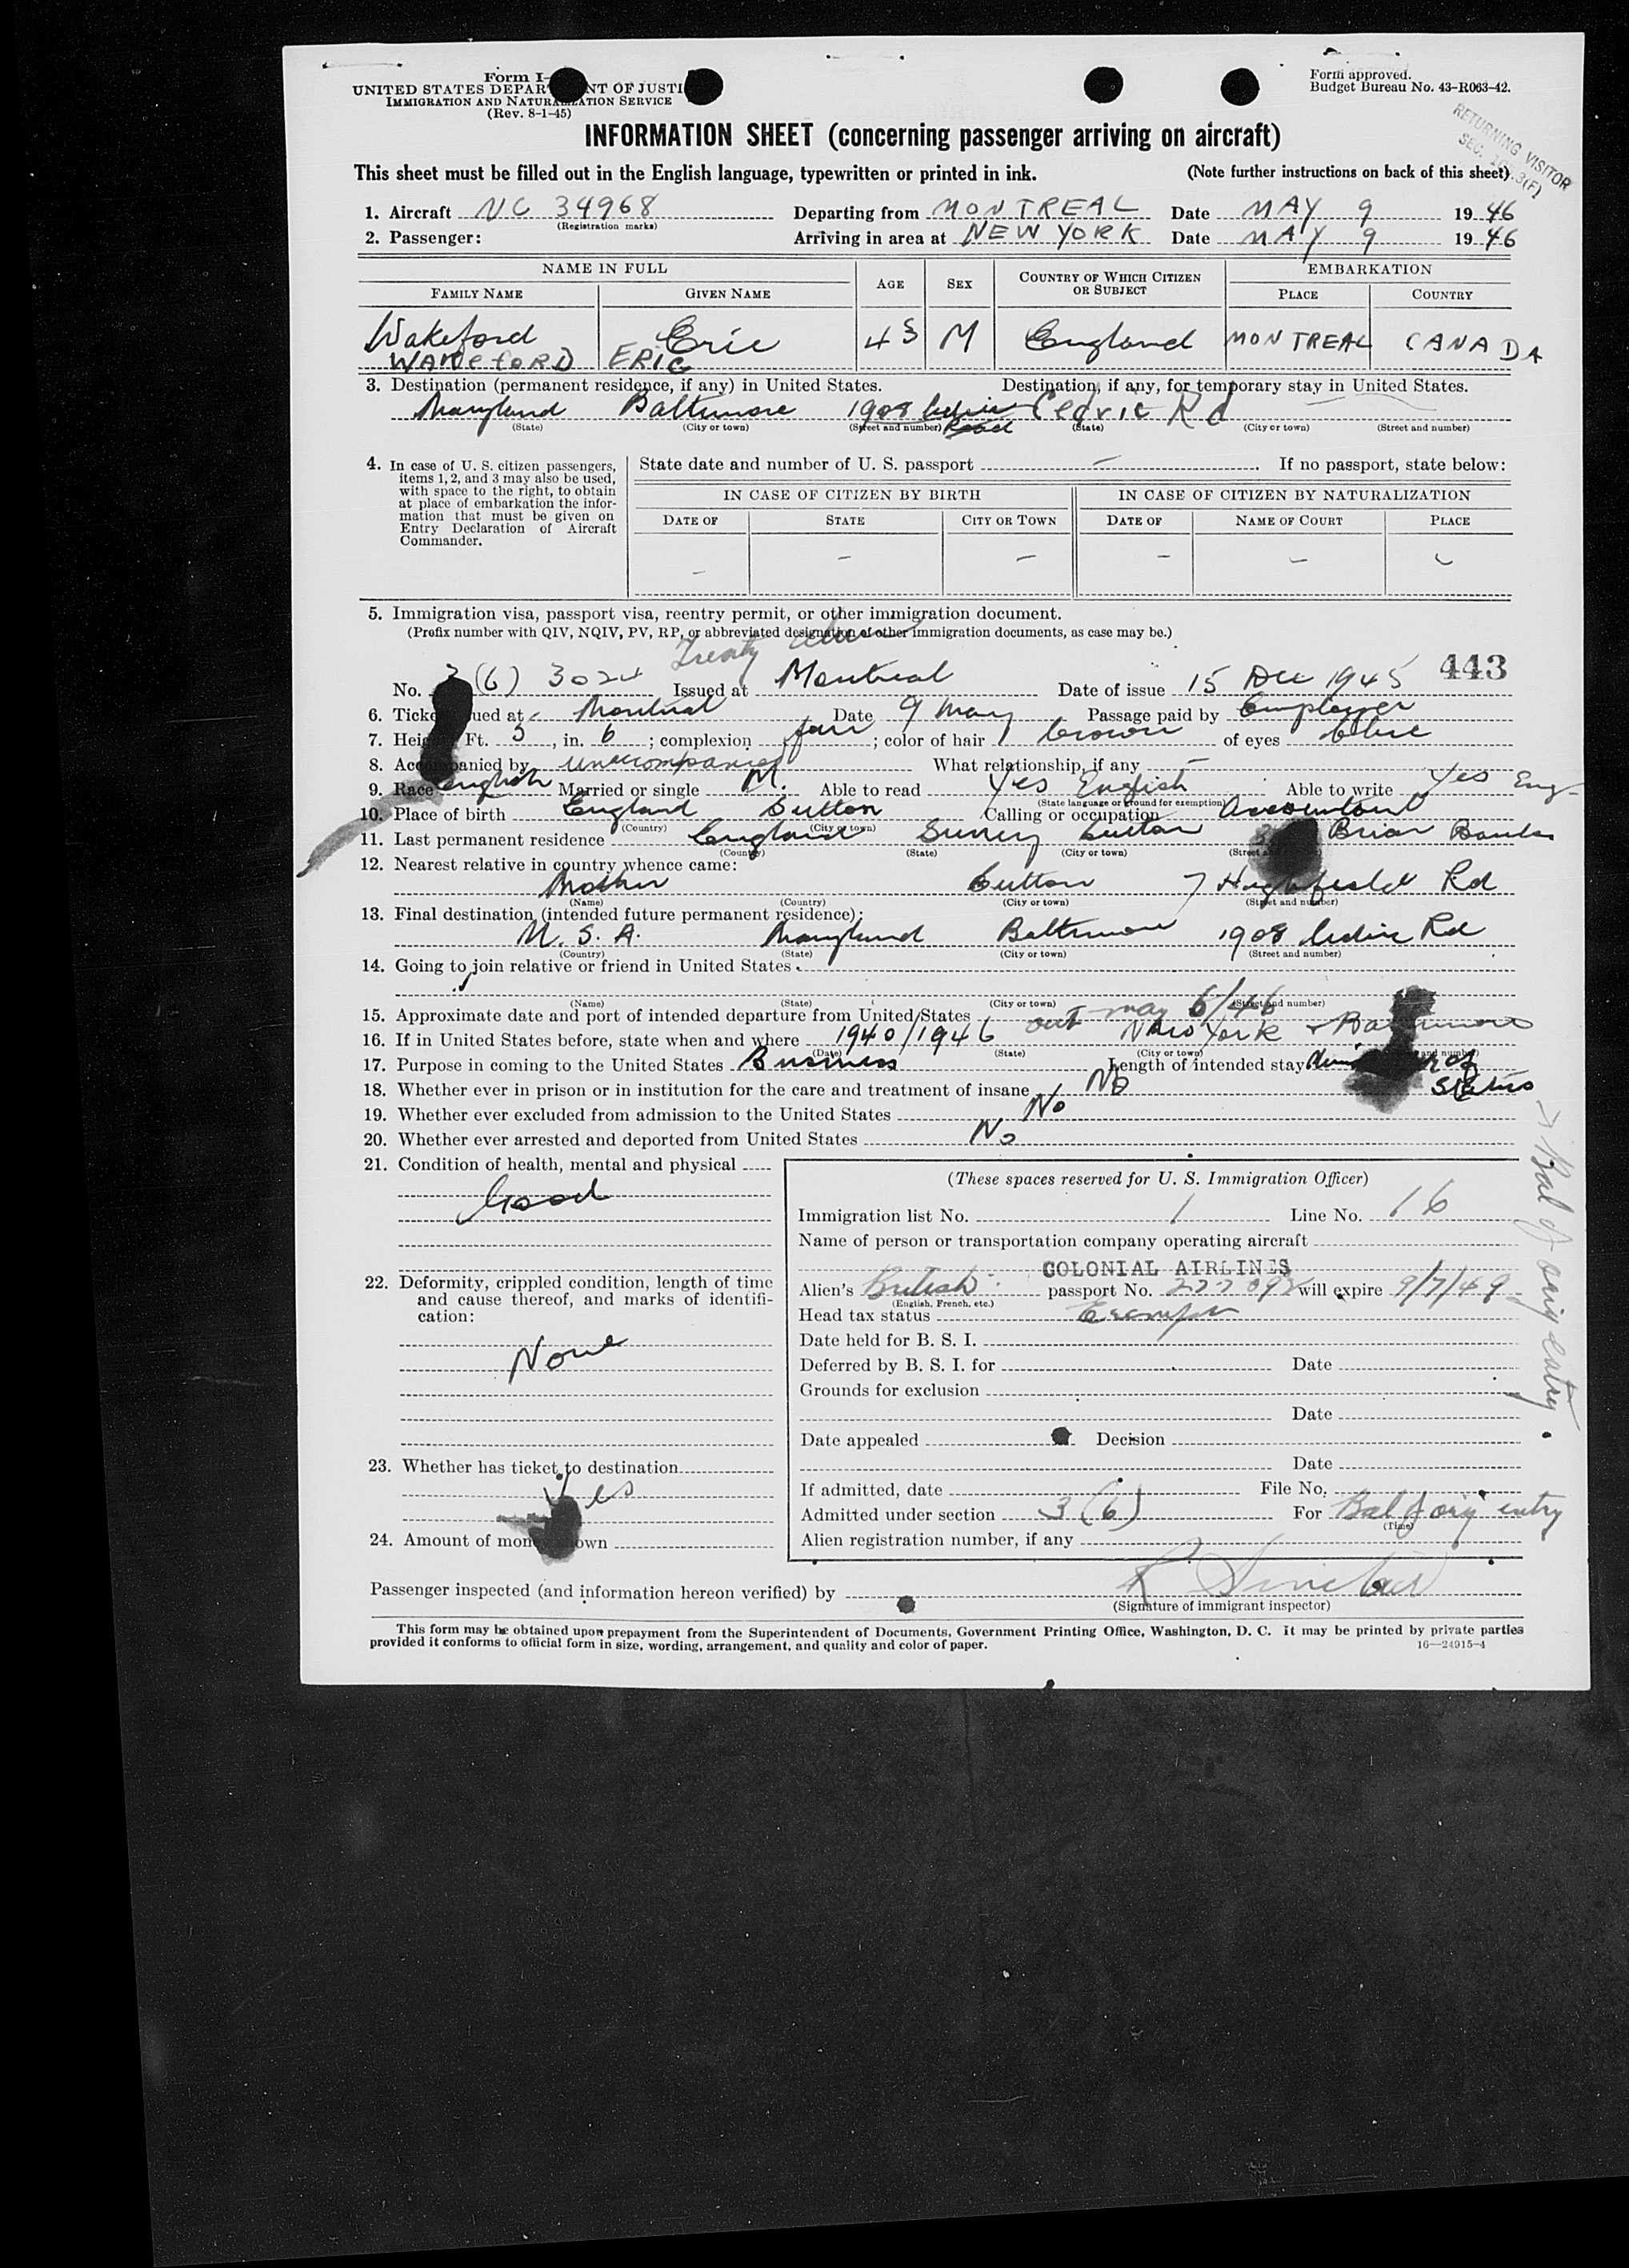 Form I-
UNITED STATES DEPAR NT OF JUSTI
IMMIGRATION AND NATURALIZATION SERVICE
(Rev. 8-1-45)
Form approved.
Budget Bureau No. 43-R063-42.
RETURNING VISITOR
SEC. 3(F)
INFORMATION SHEET (concerning passenger arriving on aircraft)
This sheet must be filled out in the English language, typewritten or printed in ink. (Note further instructions on back of this sheet)
1. Aircraft NC 34968 Departing from MONTREAL Date MAY 9 1946
(Registration marks)
2. Passenger: Arriving in area at NEW YORK Date MAY 9 1946
NAME IN FULL AGE SEX COUNTRY OF WHICH CITIZEN OR SUBJECT EMBARKATION
FAMILY NAME GIVEN NAME PLACE COUNTRY
Wakeford Eric 43 M England MONTREAL CANADA
WAKEFORD ERIC
3. Destination (permanent residence, if any) in United States. Destination, if any, for temporary stay in United States.
Maryland Baltimore 1908 Road Cedric Rd
(State) (City or town) (Street and number) (State) (City or town) (Street and number)
4. In case of U. S. citizen passengers, items 1, 2, and 3 may also be used, with space to the right, to obtain at place of embarkation the information that must be given on Entry Declaration of Aircraft Commander.
State date and number of U. S. passport — . If no passport, state below:
IN CASE OF CITIZEN BY BIRTH IN CASE OF CITIZEN BY NATURALIZATION
DATE OF STATE CITY OR TOWN DATE OF NAME OF COURT PLACE
– – – – – –
5. Immigration visa, passport visa, reentry permit, or other immigration document.
(Prefix number with QIV, NQIV, PV, RP, or abbreviated designation of other immigration documents, as case may be.)
Treaty
443
No. 3(6) 3024 Issued at Montreal Date of issue 15 Dec 1945
6. Ticke ued at Montreal Date 9 May Passage paid by Employer
7. Hei Ft. 5, in. 6; complexion fair; color of hair brown of eyes blue
8. Accompanied by unaccompanied What relationship, if any –
9. Race English Married or single M. Able to read Yes English Able to write Yes Eng-
(State language or ground for exemption)
10. Place of birth England Sutton Calling or occupation Accountant
(Country) (City or town)
11. Last permanent residence England Surrey Sutton Briar Banks
(Country) (State) (City or town) (Street a
12. Nearest relative in country whence came:
Mother Sutton 7 Highfield Rd
(Name) (Country) (City or town) (Street and number)
13. Final destination (intended future permanent residence):
U. S. A. Maryland Baltimore 1908 Rd
(Country) (State) (City or town) (Street and number)
14. Going to join relative or friend in United States
(Name) (State) (City or town) (Street and number)
15. Approximate date and port of intended departure from United States out may 6/46
16. If in United States before, state when and where 1940/1946 New York + Baltimore
(Date) (State) (City or town) and number)
17. Purpose in coming to the United States Business Length of intended stay of status
18. Whether ever in prison or in institution for the care and treatment of insane No
19. Whether ever excluded from admission to the United States No
20. Whether ever arrested and deported from United States No
21. Condition of health, mental and physical
Good
22. Deformity, crippled condition, length of time and cause thereof, and marks of identification:
None
23. Whether has ticket to destination
Yes
24. Amount of mon own
(These spaces reserved for U. S. Immigration Officer)
Immigration list No. 1 Line No. 16
Name of person or transportation company operating aircraft
COLONIAL AIRLINES
Alien's British passport No. 227092 will expire 9/7/49
(English, French, etc.)
Head tax status Exempt
Date held for B. S. I.
Deferred by B. S. I. for Date
Grounds for exclusion
Date
Date appealed Decision
Date
If admitted, date File No.
Admitted under section 3(6) For Bal of orig entry
(Time)
Alien registration number, if any
Bal of orig entry
Passenger inspected (and information hereon verified) by R Sinclair
(Signature of immigrant inspector)
This form may be obtained upon prepayment from the Superintendent of Documents, Government Printing Office, Washington, D. C. It may be printed by private parties
provided it conforms to official form in size, wording, arrangement, and quality and color of paper. 16—24915-4